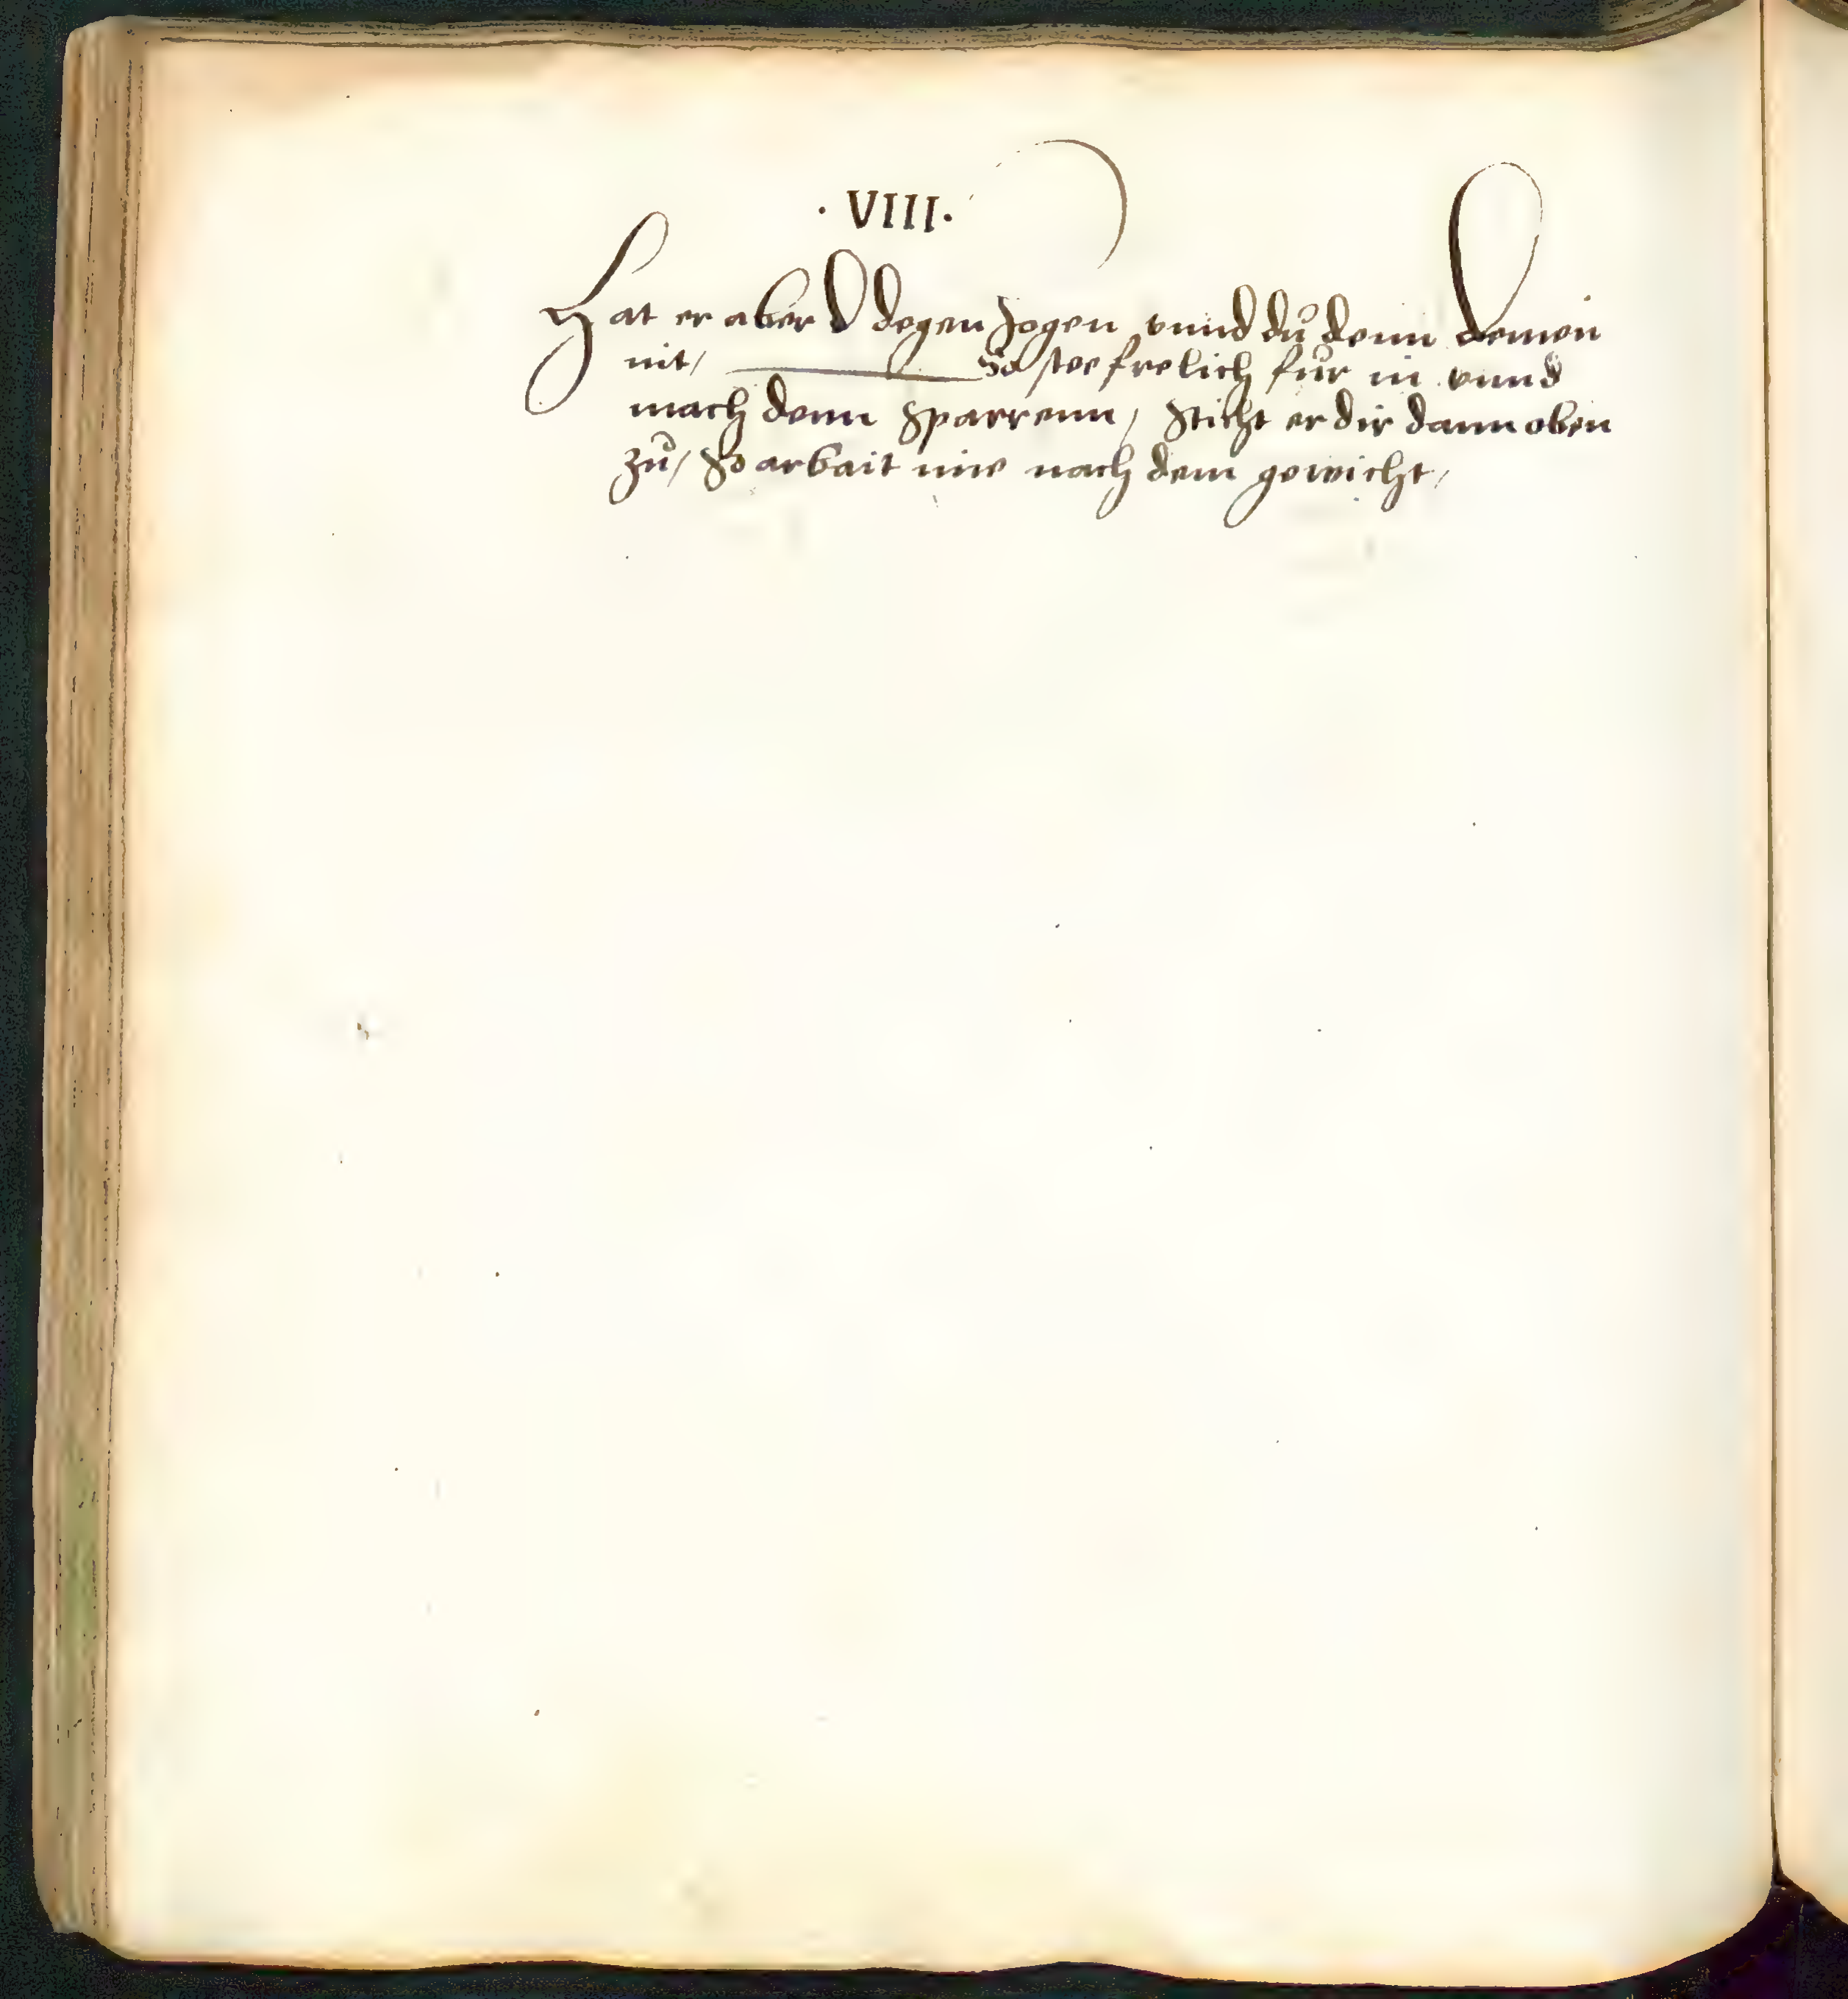 · VIII ·
Hat er aber d degen zogen vnnd dů denn deinen
nit / So stee frelich fůr in vnnd
mach denn Sparrenn / Sticht er dir dann oben
zů / So arbait nur nach dem gewicht /